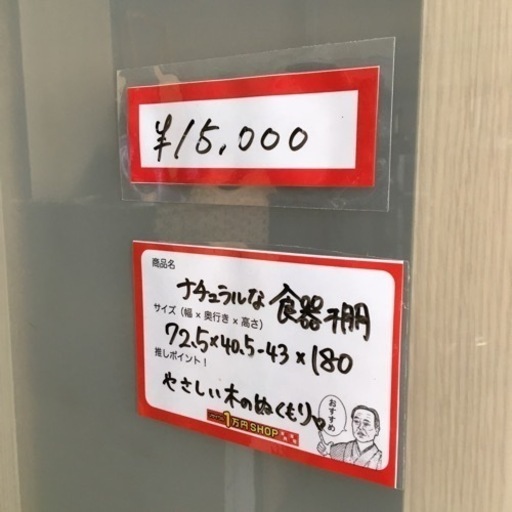 ¥15,000
商品名
ナチュラルな 食器棚
サイズ（幅 × 奥行き × 高さ）
72.5×40.5-43×180
推しポイント！
やさしい木のぬくもり。
おすすめ
1万円SHOP